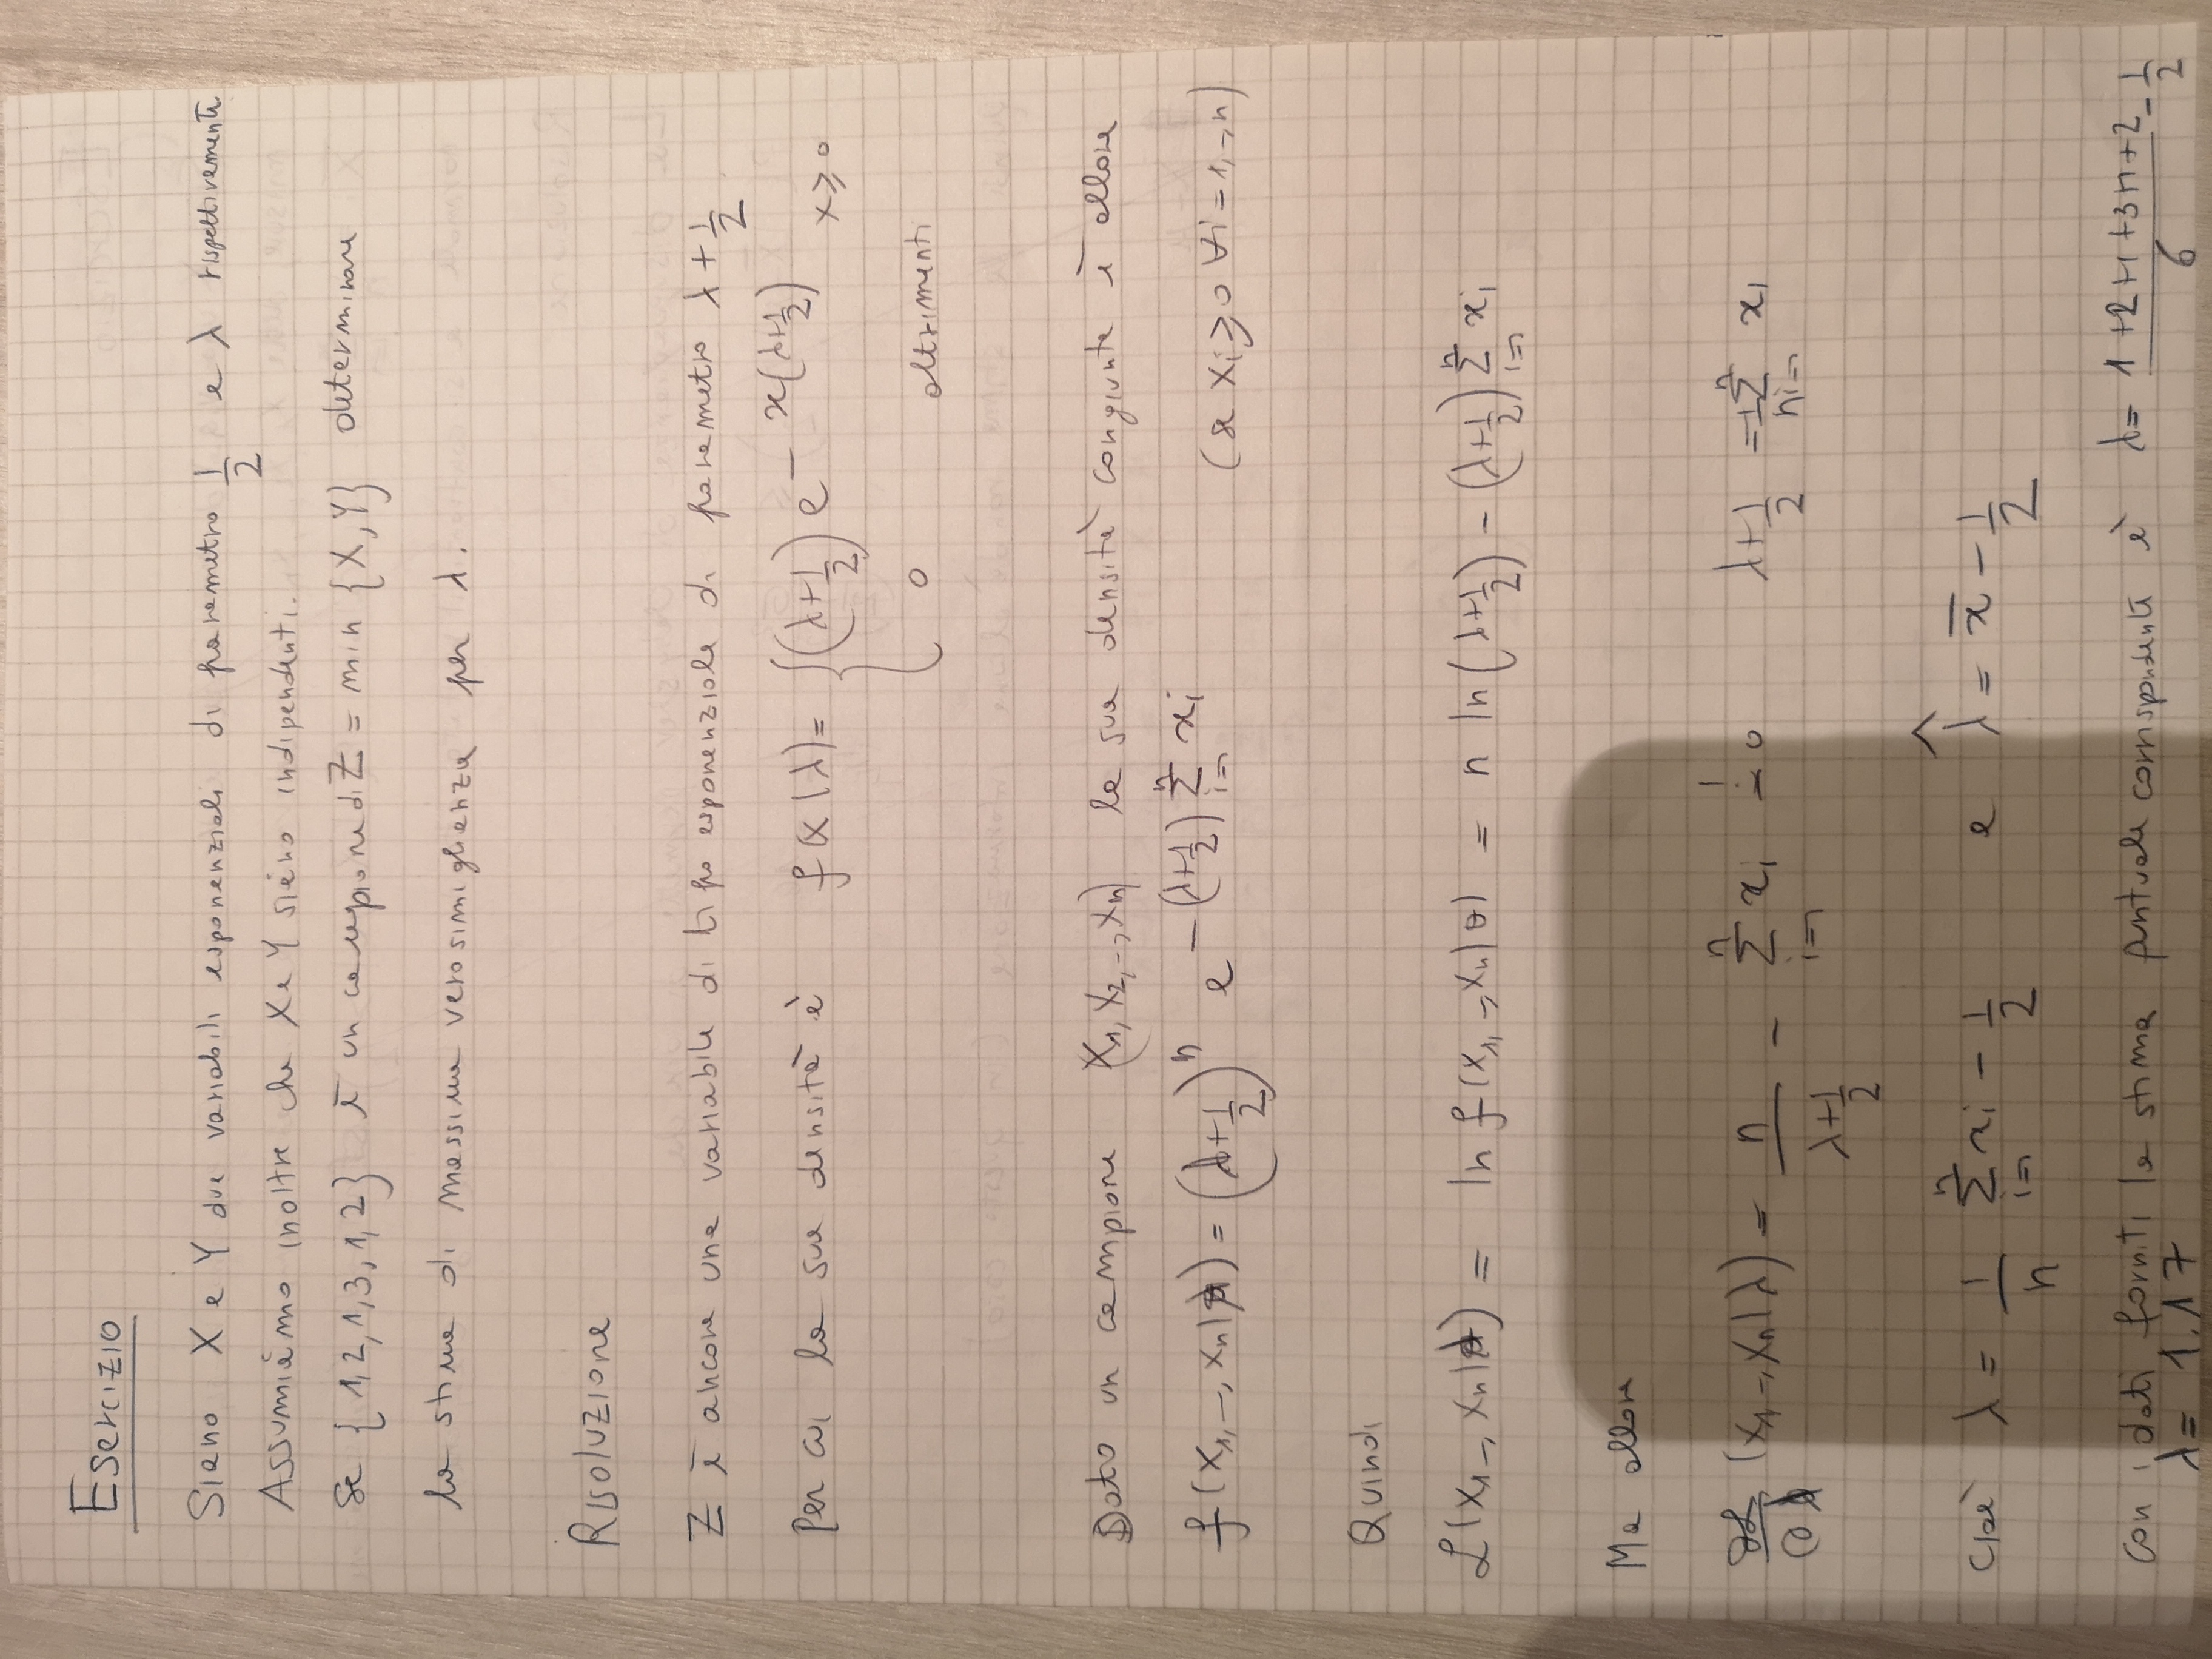 Esercizio
Siano X e Y due variabili esponenziali di parametro 1/2 e λ rispettivamente.
Assumiamo inoltre che X e Y siano indipendenti.
Se {1,2,1,3,1,2} è un campione di Z = min {X,Y} determinare
la stima di massima verosimiglianza per λ.
Risoluzione
Z è ancora una variabile di tipo esponenziale di parametro λ + 1/2
Per cui la sua densità è f(x|λ) = { (λ+1/2) e^{-x(λ+1/2)} x ≥ 0
0 altrimenti
Dato un campione (X₁, X₂, -, Xn) la sua densità congiunta è allora
f(x₁, -, xn|λ) = (λ+1/2)^n e^{-(λ+1/2) Σ_{i=1}^n xi} (se xi ≥ 0 ∀i = 1, -, n)
Quindi
L(x₁ -, xn|λ) = ln f(x₁, -, xn|θ) = n ln(λ+1/2) - (λ+1/2) Σ_{i=1}^n xi
Ma allora
∂L/∂λ (x₁ -, xn|λ) = n/(λ+1/2) - Σ_{i=1}^n xi =! 0 λ+1/2 = 1/n Σ_{i=1}^n xi
Cioè λ = 1/n Σ_{i=1}^n xi - 1/2 e λ̂ = x̄ - 1/2
Con i dati forniti la stima puntuale corrispondente è λ = (1+2+1+3+1+2)/6 - 1/2
λ = 1.17